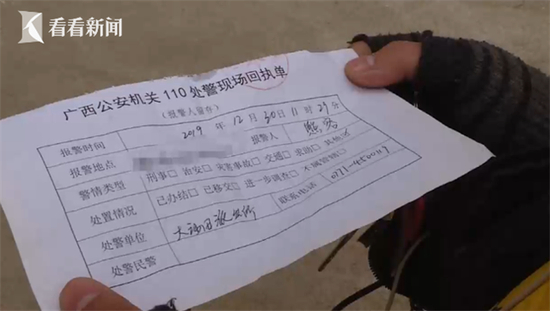 看看新闻
广西公安机关 110 处警现场回执单
(报警人留存)
报警时间 2019 年 12 月 30 日 11 时 29 分
报警地点 报警人
警情类型 刑事□ 治安□ 灾害事故□ 交通□ 求助□
处置情况 已办结□ 已移交□ 进一步调查□
处警单位 派出所 联系电话
处警民警
看看新闻